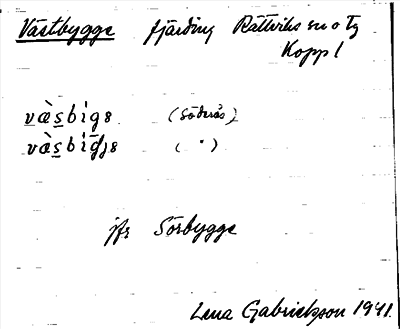 Västbygge fjärding Rättviks sn o tg
Kopp l
væ̀sbìgə (Söderås)
væ̀sbìḡjə ( " )
jfr Sörbygge
Lena Gabrielsson 1941.